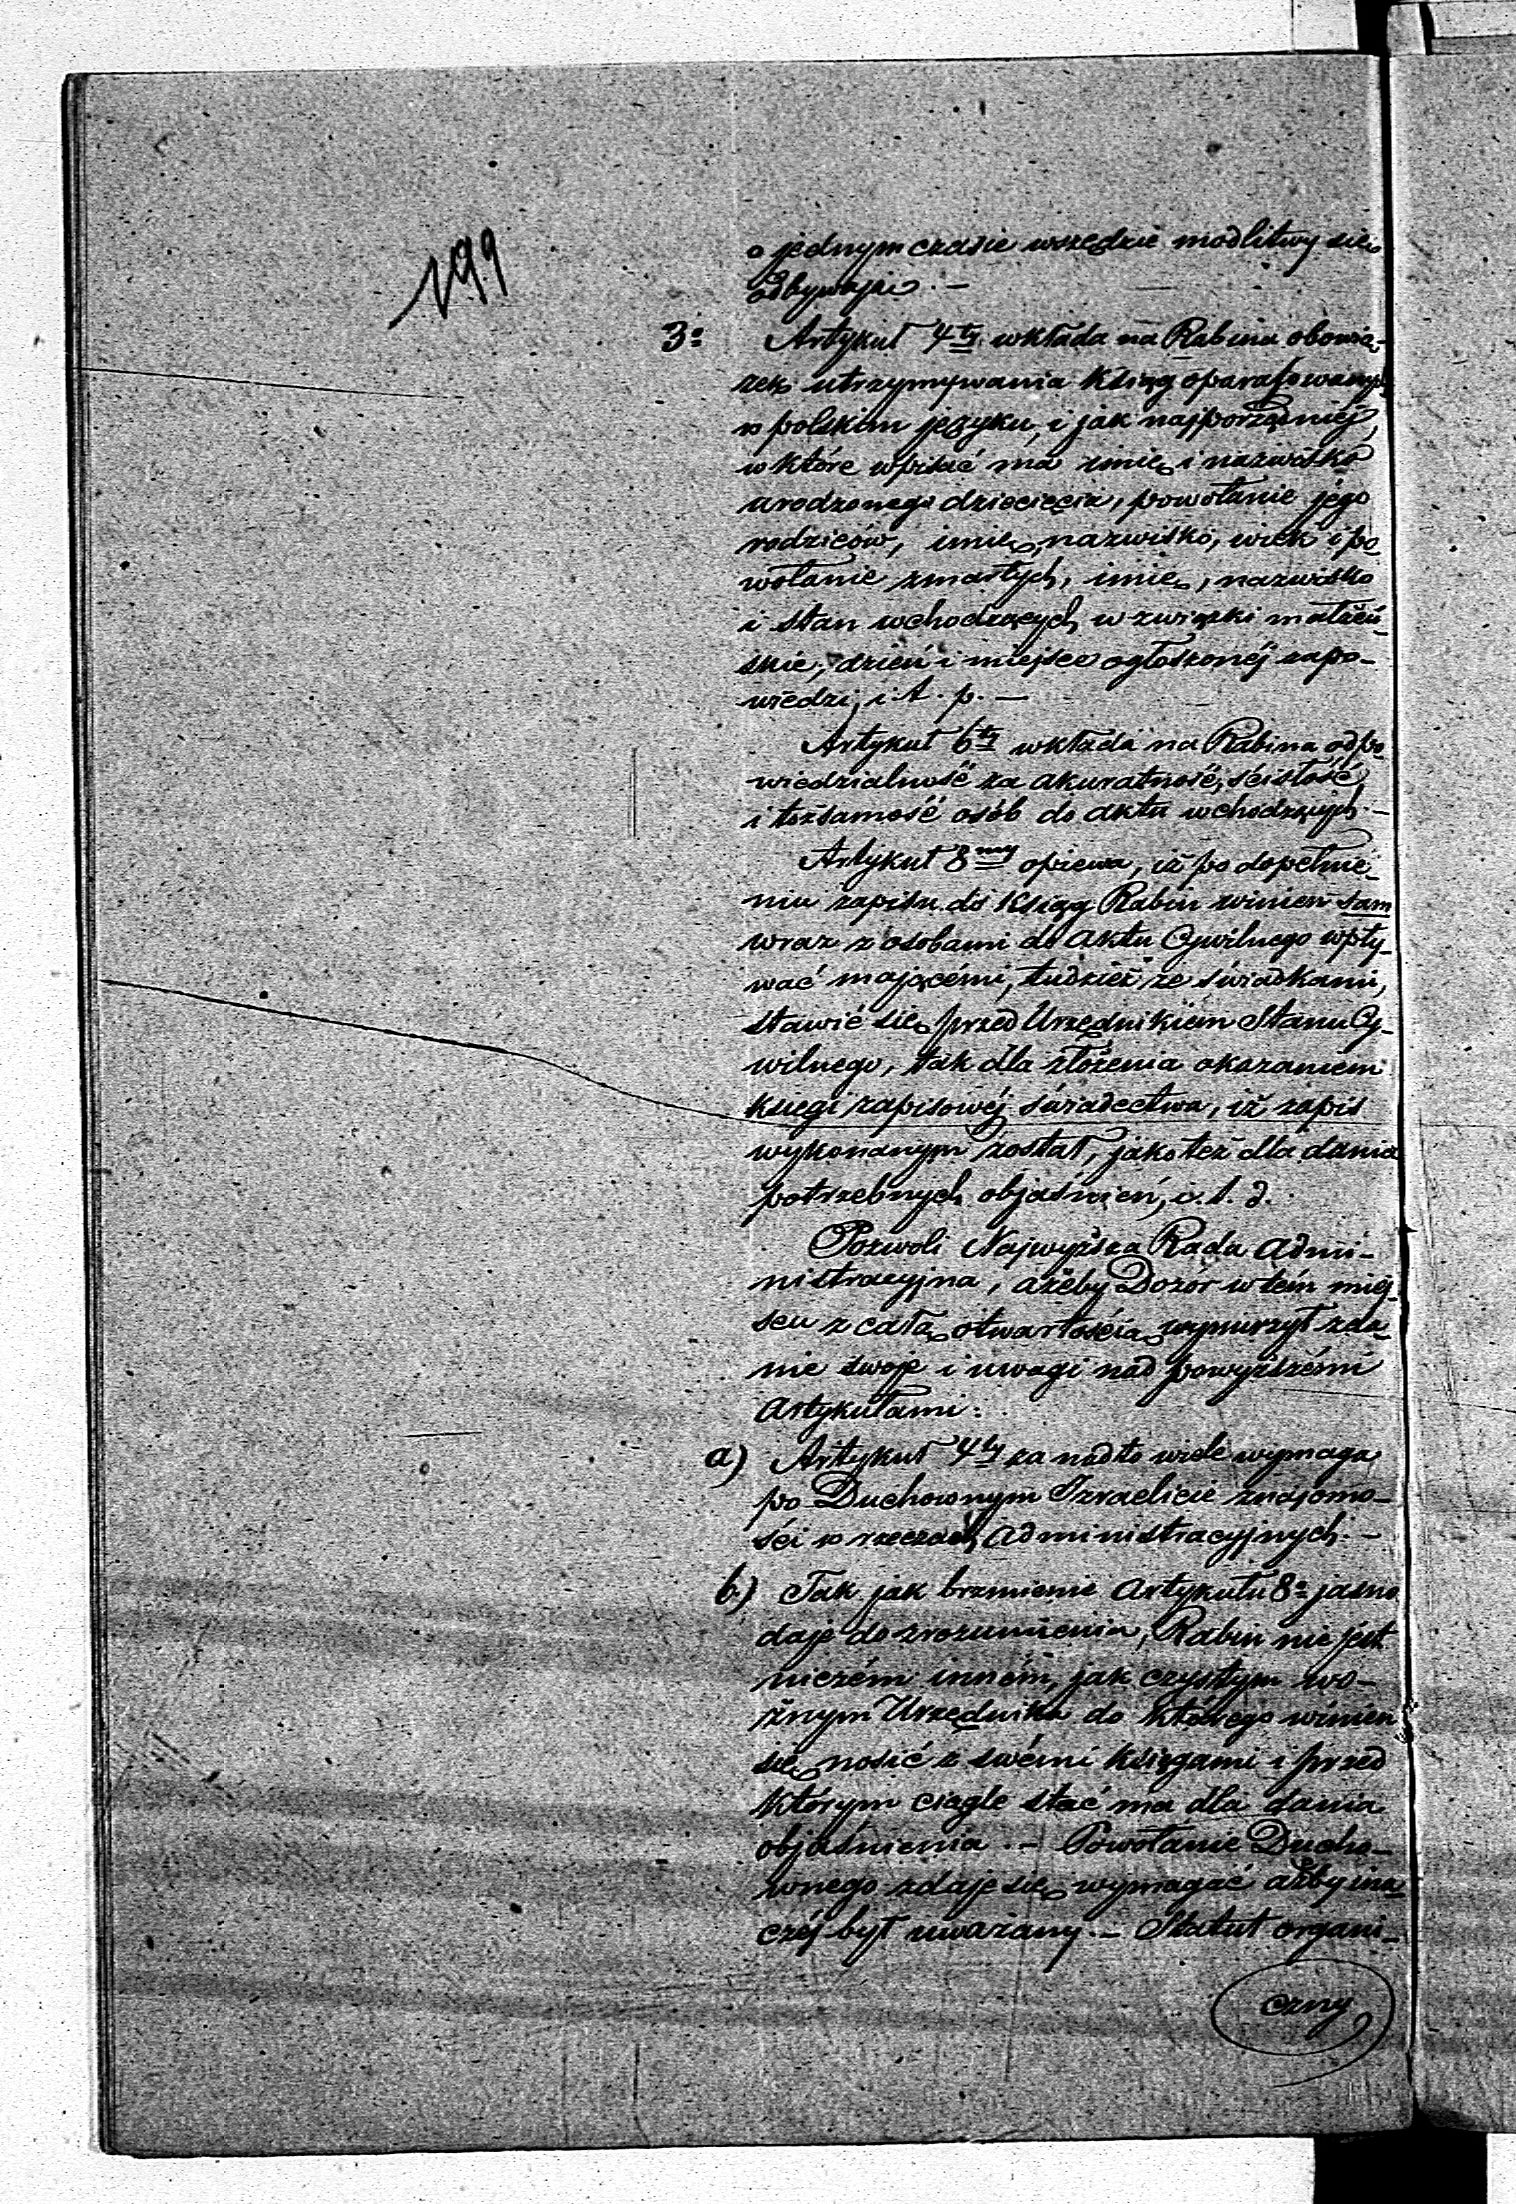 199
o jednym czasie wszędzie modlitwy się
odbywają. –
3o Artykuł 4ty wkłada na Rabina obowią-
zek utrzymywania Ksiąg oparafowanych
w polskim języku, i jak najporządniej,
w które wpisać ma imię i nazwisko
urodzonego dziecięcia, powołanie jego
rodziców, imię, nazwisko, wiek i po-
wołanie zmarłych, imię, nazwisko
i stan wchodzących w związki małżeń-
skie, dzień i miejsce ogłoszonéj zapo-
wiedzi, i t. p. –
Artykuł 6ty wkłada na Rabina odpo-
wiedzialność za akuratność, ścisłość,
i tożsamość osób do aktu wchodzących. –
Artykuł 8my opiewa, iż po dopełnie-
niu zapisu do Ksiąg Rabin winien sam
wraz z osobami do Aktu Cywilnego wpły-
wać mającémi, tudzież ze świadkami,
stawić się przed Urzędnikiem Stanu Cy-
wilnego, tak dla złożenia okazaniem
księgi zapisowéj świadectwa, iż zapis
wykonanym został, jako też dla dania
potrzebnych objaśnień, i. t. d.
Pozwoli Najwyższa Rada Admi-
nistracyjna, ażeby Dozór w tém miej-
scu z całą otwartością wynurzył zda-
nie swoje i uwagi nad powyższémi
Artykułami:
a) Artykuł 4ty za nadto wiele wymaga
po Duchownym Izraelicie znajomo-
ści w rzeczach Administracyjnych. –
b.) Tak jak brzmienie Artykułu 8o jasno
daje do zrozumienia, Rabin nie jest
niczém inném, jak czystym wo-
źnym Urzędnika do którego winien
się nosić z swémi księgami i przed
którym ciągle stać ma dla dania
objaśnienia. – Powołanie Ducho-
wnego zdaje się wymagać ażby ina-
czéj był uważany. – Statut organi-
czny